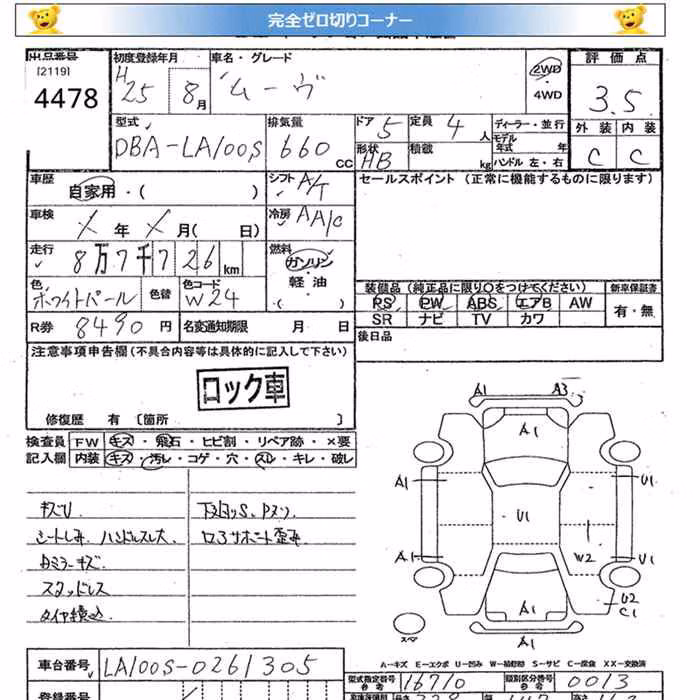 完全ゼロ切りコーナー
出品番号 初度登録年月 車名・グレード 評価点
[2119]
4478 H25 8月 ムーヴ 2WD・4WD 3.5
型式 排気量 ドア 5 定員 4人 ディーラー・並行 外装 内装
DBA-LA100S 660cc 形状 HB 積載 kg モデル年式 年 ハンドル 左・右 C C
車歴 自家用・( ) シフト A/T セールスポイント (正常に機能するものに限ります)
車検 X年X月( 日) 冷房 AA/C
走行 8万7千726km 燃料 ガソリン・軽油 ( )
色 ホワイトパール 色替 色コード W24 装備品 (純正品に限り○をつけてください) 新車保証書
PS PW ABS エアB AW 有・無
R券 8490円 名変通知期限 月 日 SR ナビ TV カワ
注意事項申告欄(不具合内容等は具体的に記入して下さい) 後日品
ロック車
修復歴 有 〔箇所 〕
検査員 FW キズ・飛石・ヒビ割・リペア跡・×要
記入欄 内装 キズ・汚レ・コゲ・穴・スレ・キレ・破レ
キズU 下廻りS、Pヌリ
シートしみ、ハンドルスレ大 ロアサポート歪み
Dミラーキズ
スタッドレス
タイヤ積込
A1 A3
A1
A1 U1
U1
A1 W2 U1
A1 U2
C1
スペア A1
A-キズ E-エクボ U-凹み W-補修跡 S-サビ C-腐食 XX-交換済
車台番号 LA100S-0261305 型式指定番号 参考 16710 類別区分番号 参考 0013
登録番号